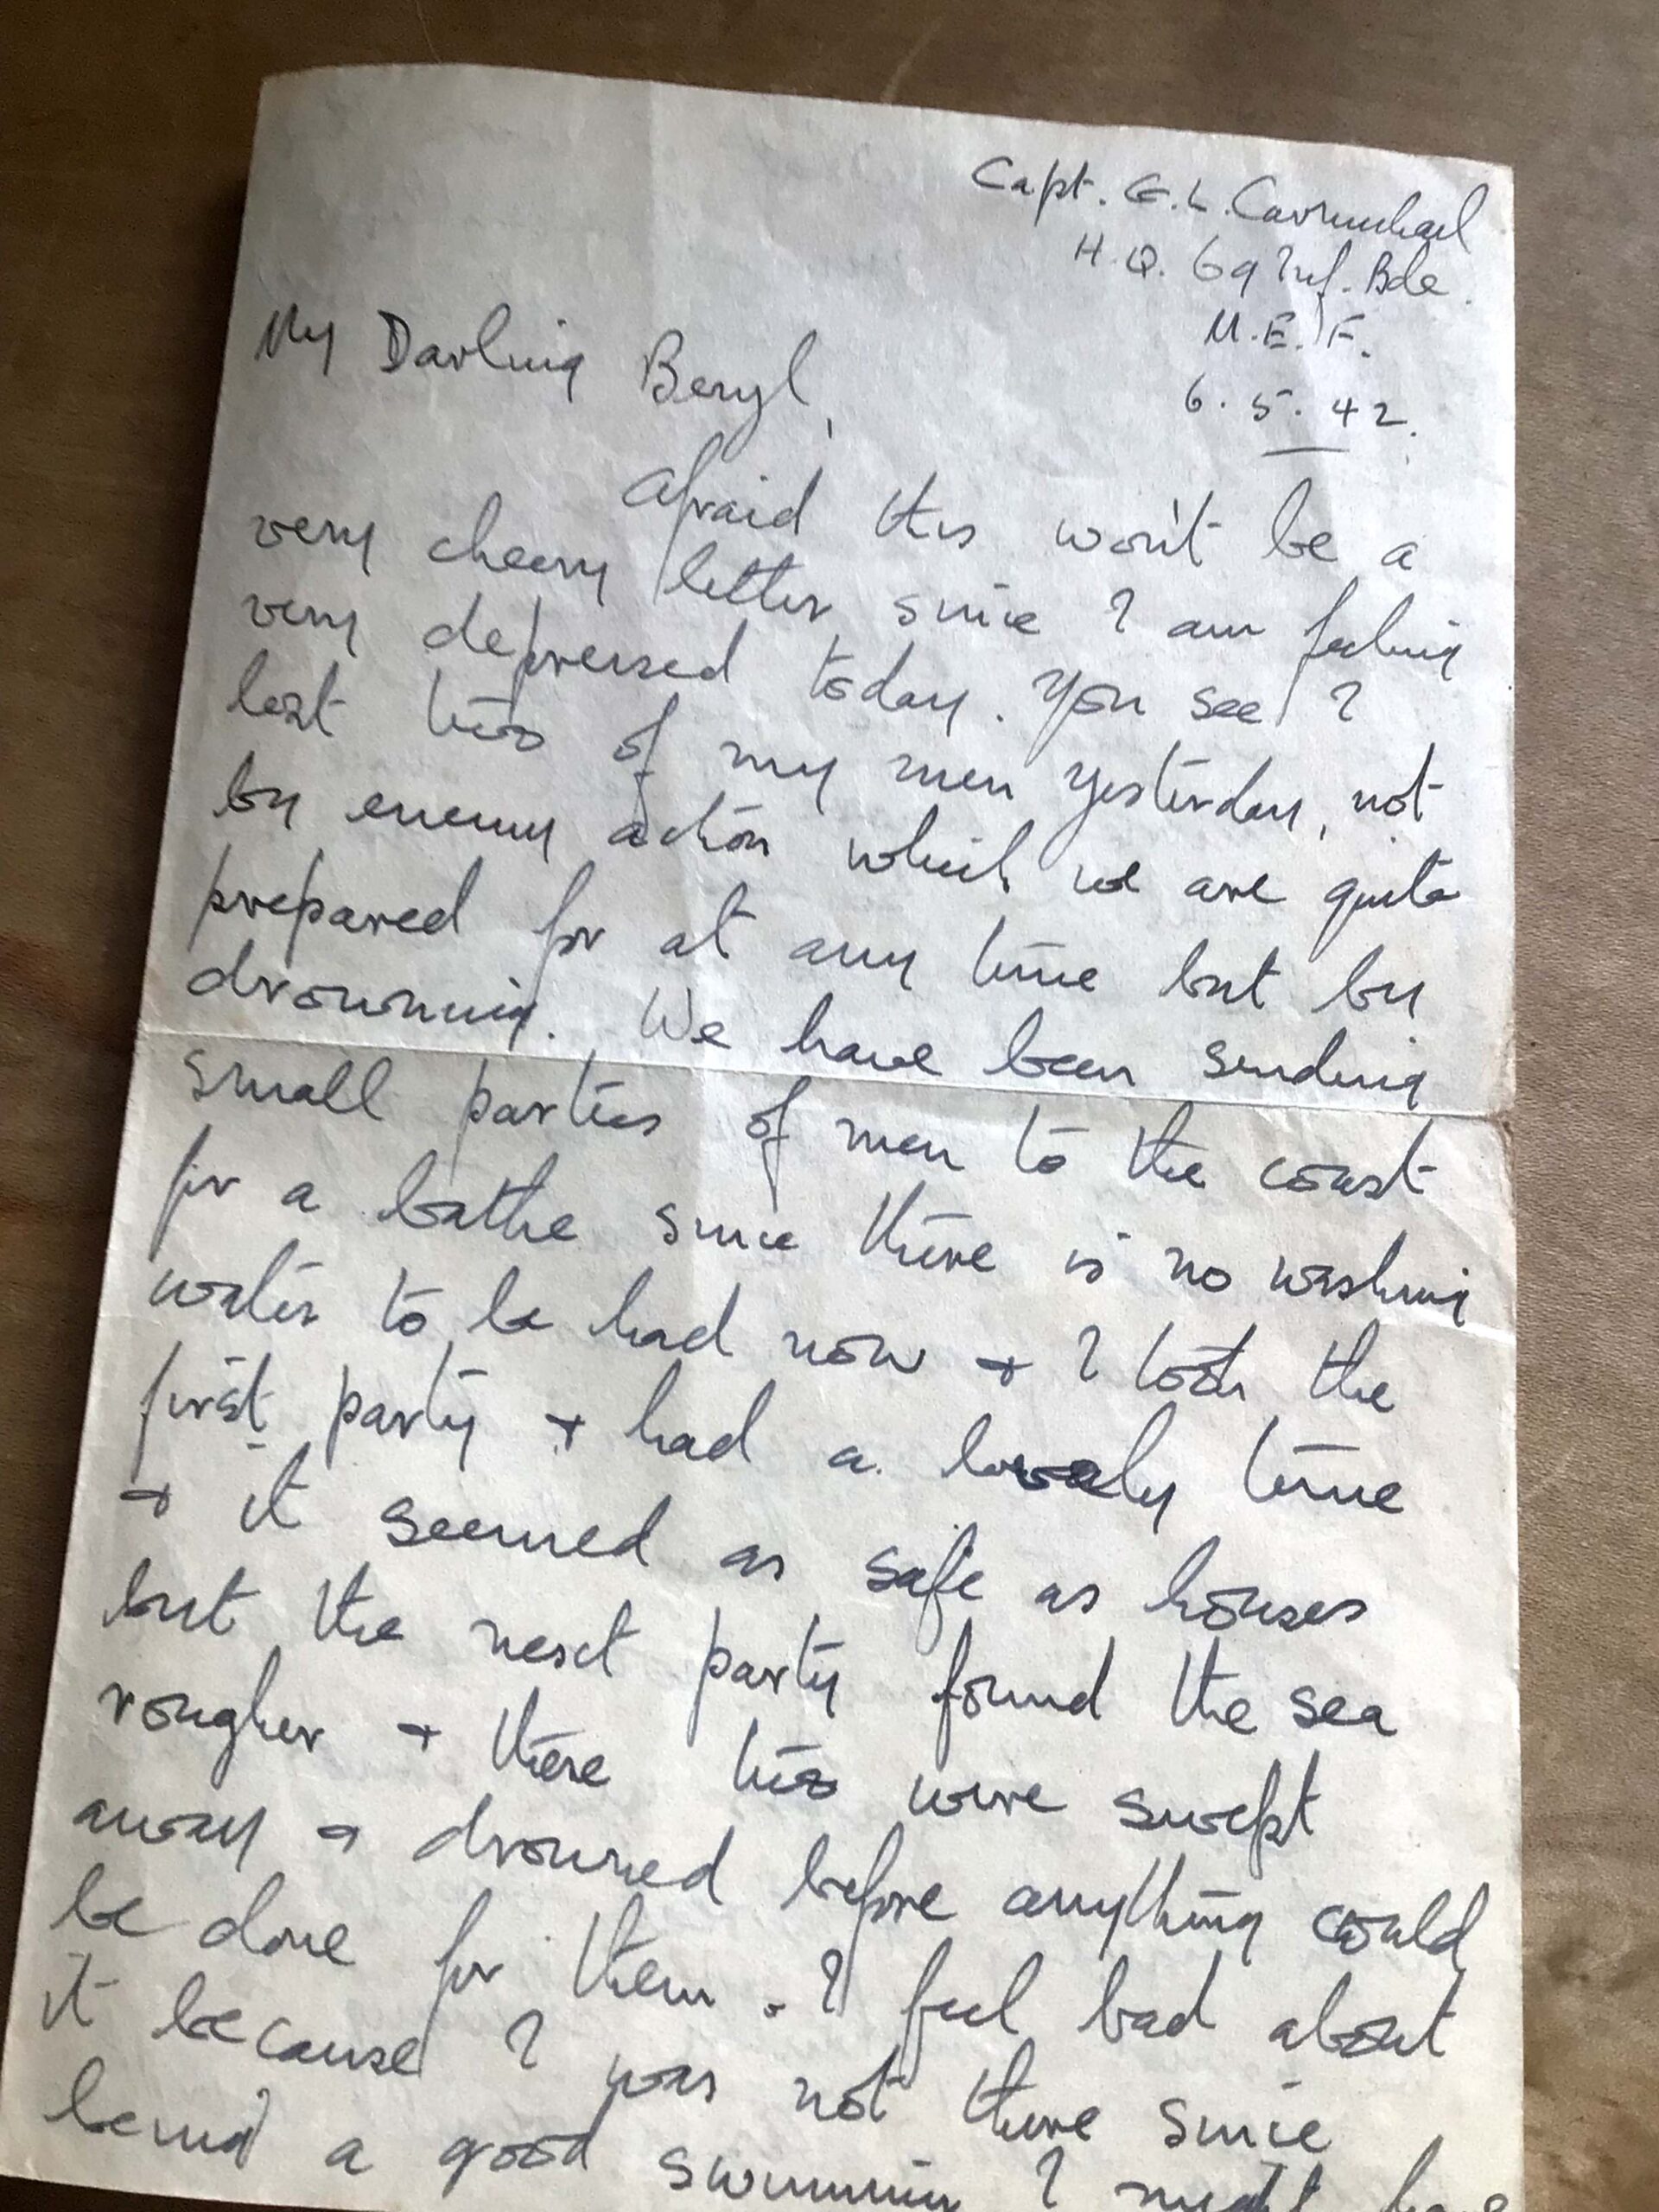 Capt. G. L. Carmichael
H. Q. 69 Inf. Bde.
M. E. F.
6. 5. 42.
My Darling Beryl,
Afraid this won't be a
very cheery letter since I am feeling
very depressed today. You see I
lost two of my men yesterday, not
by enemy action which we are quite
prepared for at any time but by
drowning. We have been sending
small parties of men to the coast
for a bathe since there is no washing
water to be had now + I took the
first party + had a lovely time
+ it seemed as safe as houses
but the next party found the sea
rougher + these two were swept
away + drowned before anything could
be done for them. I feel bad about
it because I was not there since
being a good swimmer I might have